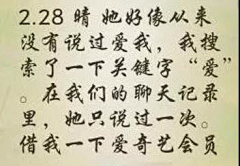 2.28 晴 她好像从来
没有说过爱我，我搜
索了一下关键字“爱”
。在我们的聊天记录
里，她只说过一次。
借我一下爱奇艺会员